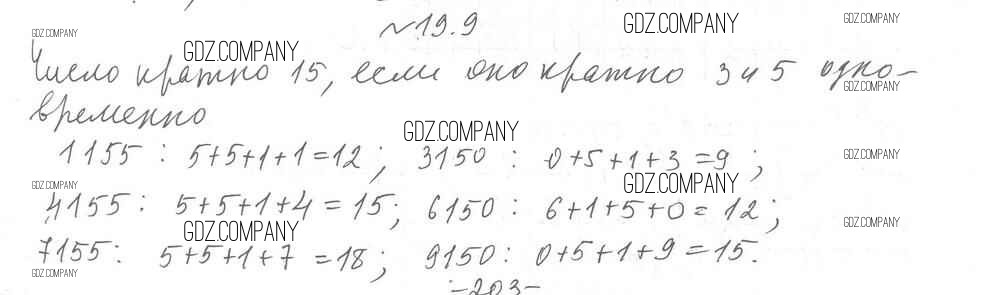 №19.9
Число кратно 15, если оно кратно 3 и 5 одно-
временно
1155 : 5+5+1+1=12; 3150 : 0+5+1+3=9;
4155: 5+5+1+4=15; 6150: 6+1+5+0=12;
7155: 5+5+1+7=18; 9150: 0+5+1+9=15.
-203-
GDZ.COMPANY
GDZ.COMPANY
GDZ.COMPANY
GDZ.COMPANY
GDZ.COMPANY
GDZ.COMPANY
GDZ.COMPANY
GDZ.COMPANY
GDZ.COMPANY
GDZ.COMPANY
GDZ.COMPANY
GDZ.COMPANY